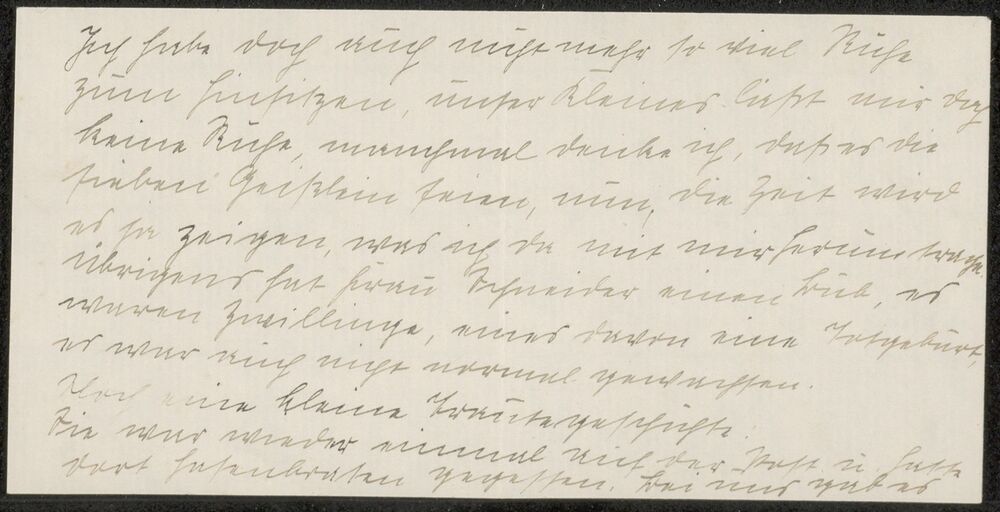 Ich habe doch auch nicht mehr so viel Ruhe
zum hinsitzen, unser Kleines laßt mir doch
keine Ruhe, manchmal denke ich, daß es die
sieben Geißlein seien, nun, die Zeit wird
es ja zeigen, was ich da mit mir herum trage.
übrigens hat Frau Schneider einen Bub, es
waren Zwillinge, eines davon eine Totgeburt,
es war auch nicht normal gewachsen.
Noch eine kleine Trautegeschichte.
Sie war wieder einmal auf der Post u. hatte
dort Hasenbraten gegessen. Bei uns gab es